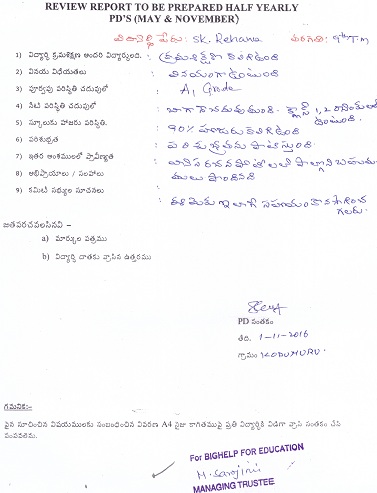 REVIEW REPORT TO BE PREPARED HALF YEARLY
PD'S (MAY & NOVEMBER)
విద్యార్థి పేరు: SK. Rehana తరగతి: 9th T.m
1) విద్యార్థి క్రమశిక్షణ అందరి విద్యార్థులది. : క్రమశిక్షణ కలిగివుంది
2) వినయ విధేయతలు : వినయంగా వుంటుంది
3) పూర్వపు పరిస్థితి చదువులో : A1 Grade
4) నేటి పరిస్థితి చదువులో : బాగా చదువుతుంది. క్లాస్ 1, 2 వుంటుంది.
5) స్కూలుకు హాజరు పరిస్థితి. : 90% హాజరు కలిగివుంది
6) పరిశుభ్రత : పరిశుభ్రతను పాటిస్తుంది.
7) ఇతర అంశములలో ప్రావీణ్యత :
8) అభిప్రాయాలు / సలహాలు : పొందినది
9) కమిటీ సభ్యుల సూచనలు : ఈమెకు ఇలాగే సహాయం కొనసాగించ గలరు.
జతపరచవలసినవి –
a) మార్కుల పత్రము
b) విద్యార్థి దాతకు వ్రాసిన ఉత్తరము
PD సంతకం
తేది. 1-11-2016
గ్రామం KODUMURU.
గమనిక:-
పైన సూచించిన విషయములకు సంబంధించిన వివరణ A4 సైజు కాగితముపై ప్రతి విద్యార్థికి విడిగా వ్రాసి సంతకం చేసి
పంపవలెను.
For BIGHELP FOR EDUCATION
M. Sarojini
MANAGING TRUSTEE